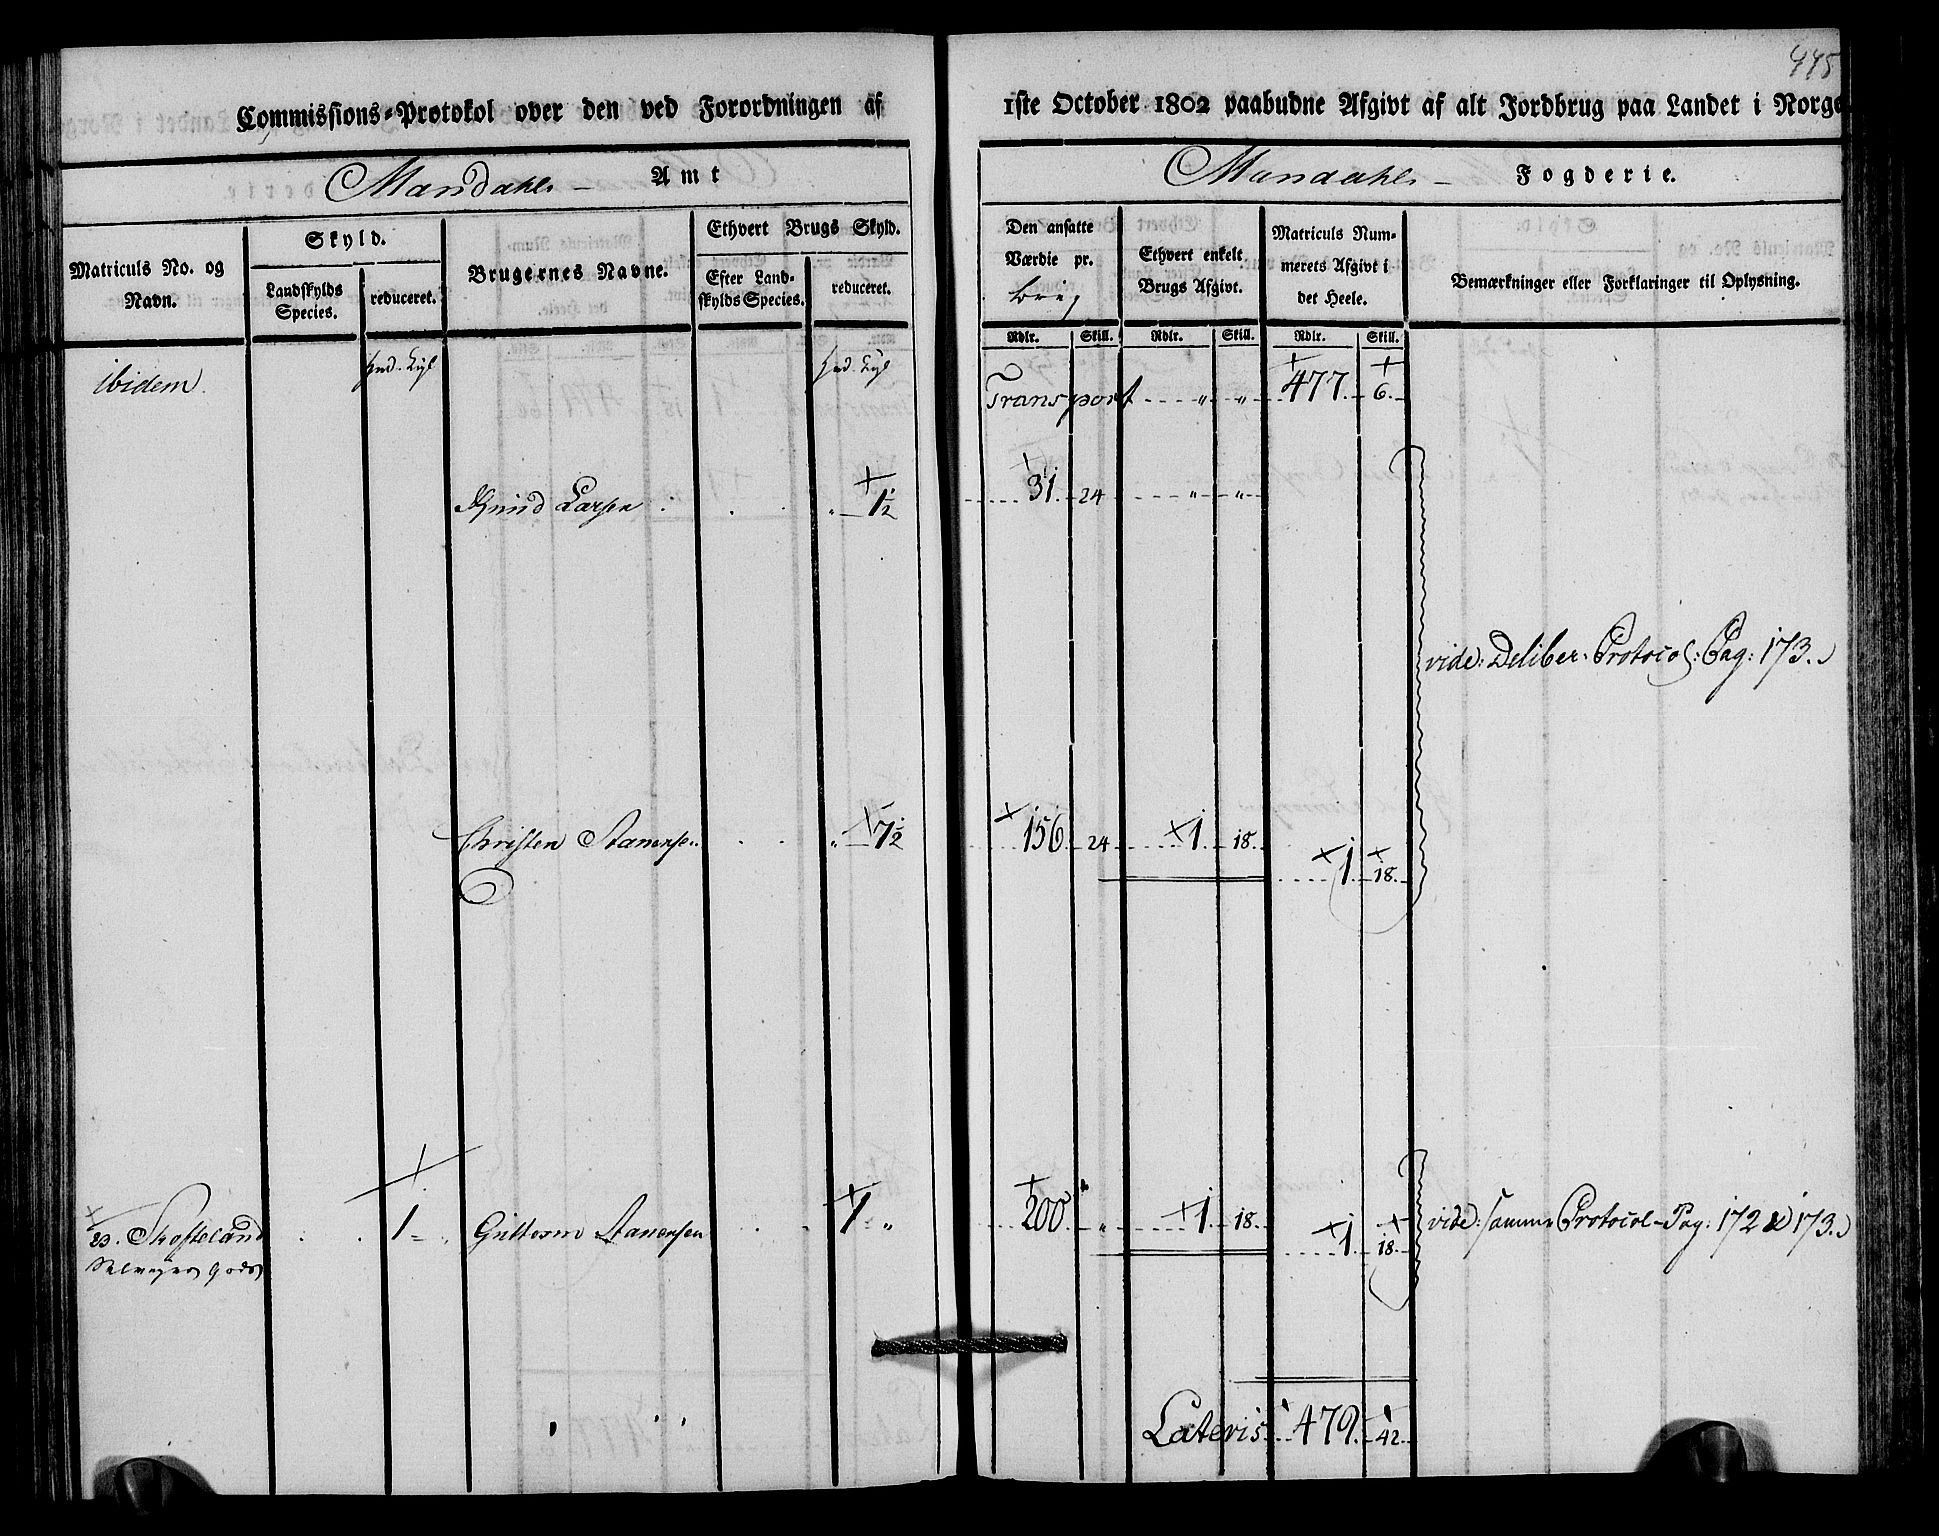 445
Commissions-Protokol over den ved Forordningen af 1ste October 1802 paabudne Afgivt af alt Jordbrug paa Landet i Norge
Mandahls Amt
Mandahls Fogderie.
Matriculs No. og Navn.
Skyld.
Landskylds Species.
reduceret.
Brugernes Navne.
Ethvert Brugs Skyld.
Efter Landskylds Species.
reduceret.
Den ansatte Værdie pr.
Ethvert enkelt Brugs Afgivt.
Matriculs Nummerets Afgivt i det Heele.
Bemærkninger eller Forklaringer til Oplysning.
Rdlr. Skill. Rdlr. Skill. Rdlr. Skill.
ibidem.
Transport „ „ 477. 6.
Gunid Larsen „ 1½ 31. 24 „ „
vide: Deliber. Protocol: Pag: 173.
Christen Aanensen „ 7½ 156. 24 1. 18.
1. 18.
23. Skofteland 1 „ Guttorm Aanensen 1 „ 200. „ 1. 18.
1. 18.
vide: samme Protocol Pag: 172 & 173.
Selveyer Gods
Lateris 479. 42.